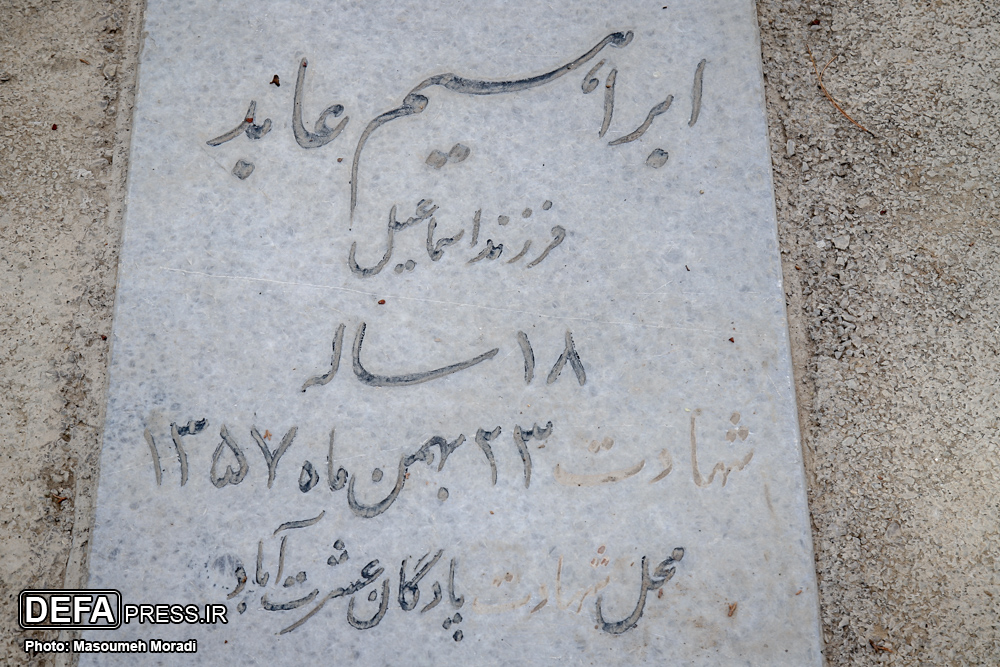 ابراهیم عابد
فرزند اسماعیل
۱۸ ساله
شهادت ۲۳ بهمن ماه ۱۳۵۷
محل شهادت پادگان عشرت آباد
DEFAPRESS.IR
Photo: Masoumeh Moradi